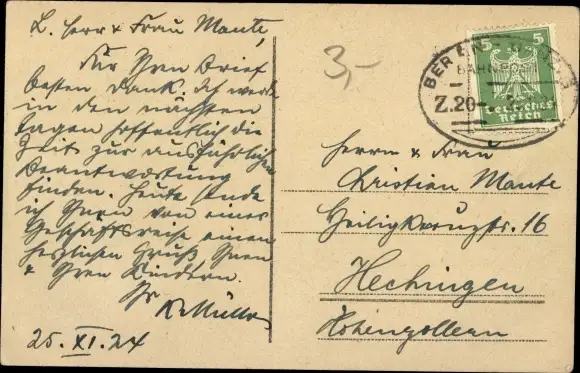 L. Herr & Frau Mante,
Für Ihren Brief
besten Dank. Ich werde
in den nächsten
Tagen hoffentlich die
Zeit zur ausführlichen
Beantwortung
finden. Heute sende
ich Ihnen von einer
Geschäftsreise einen
herzlichen Gruß Ihnen
& Ihren Kindern.
Ihr
K. Müller
25. XI. 24
3,-
5 5
Deutsches
Reich
BER
BAHNPOST
Z.20
Herrn & Frau
Christian Mante
Heiligkreuzstr. 16
Hechingen
Hohenzollern